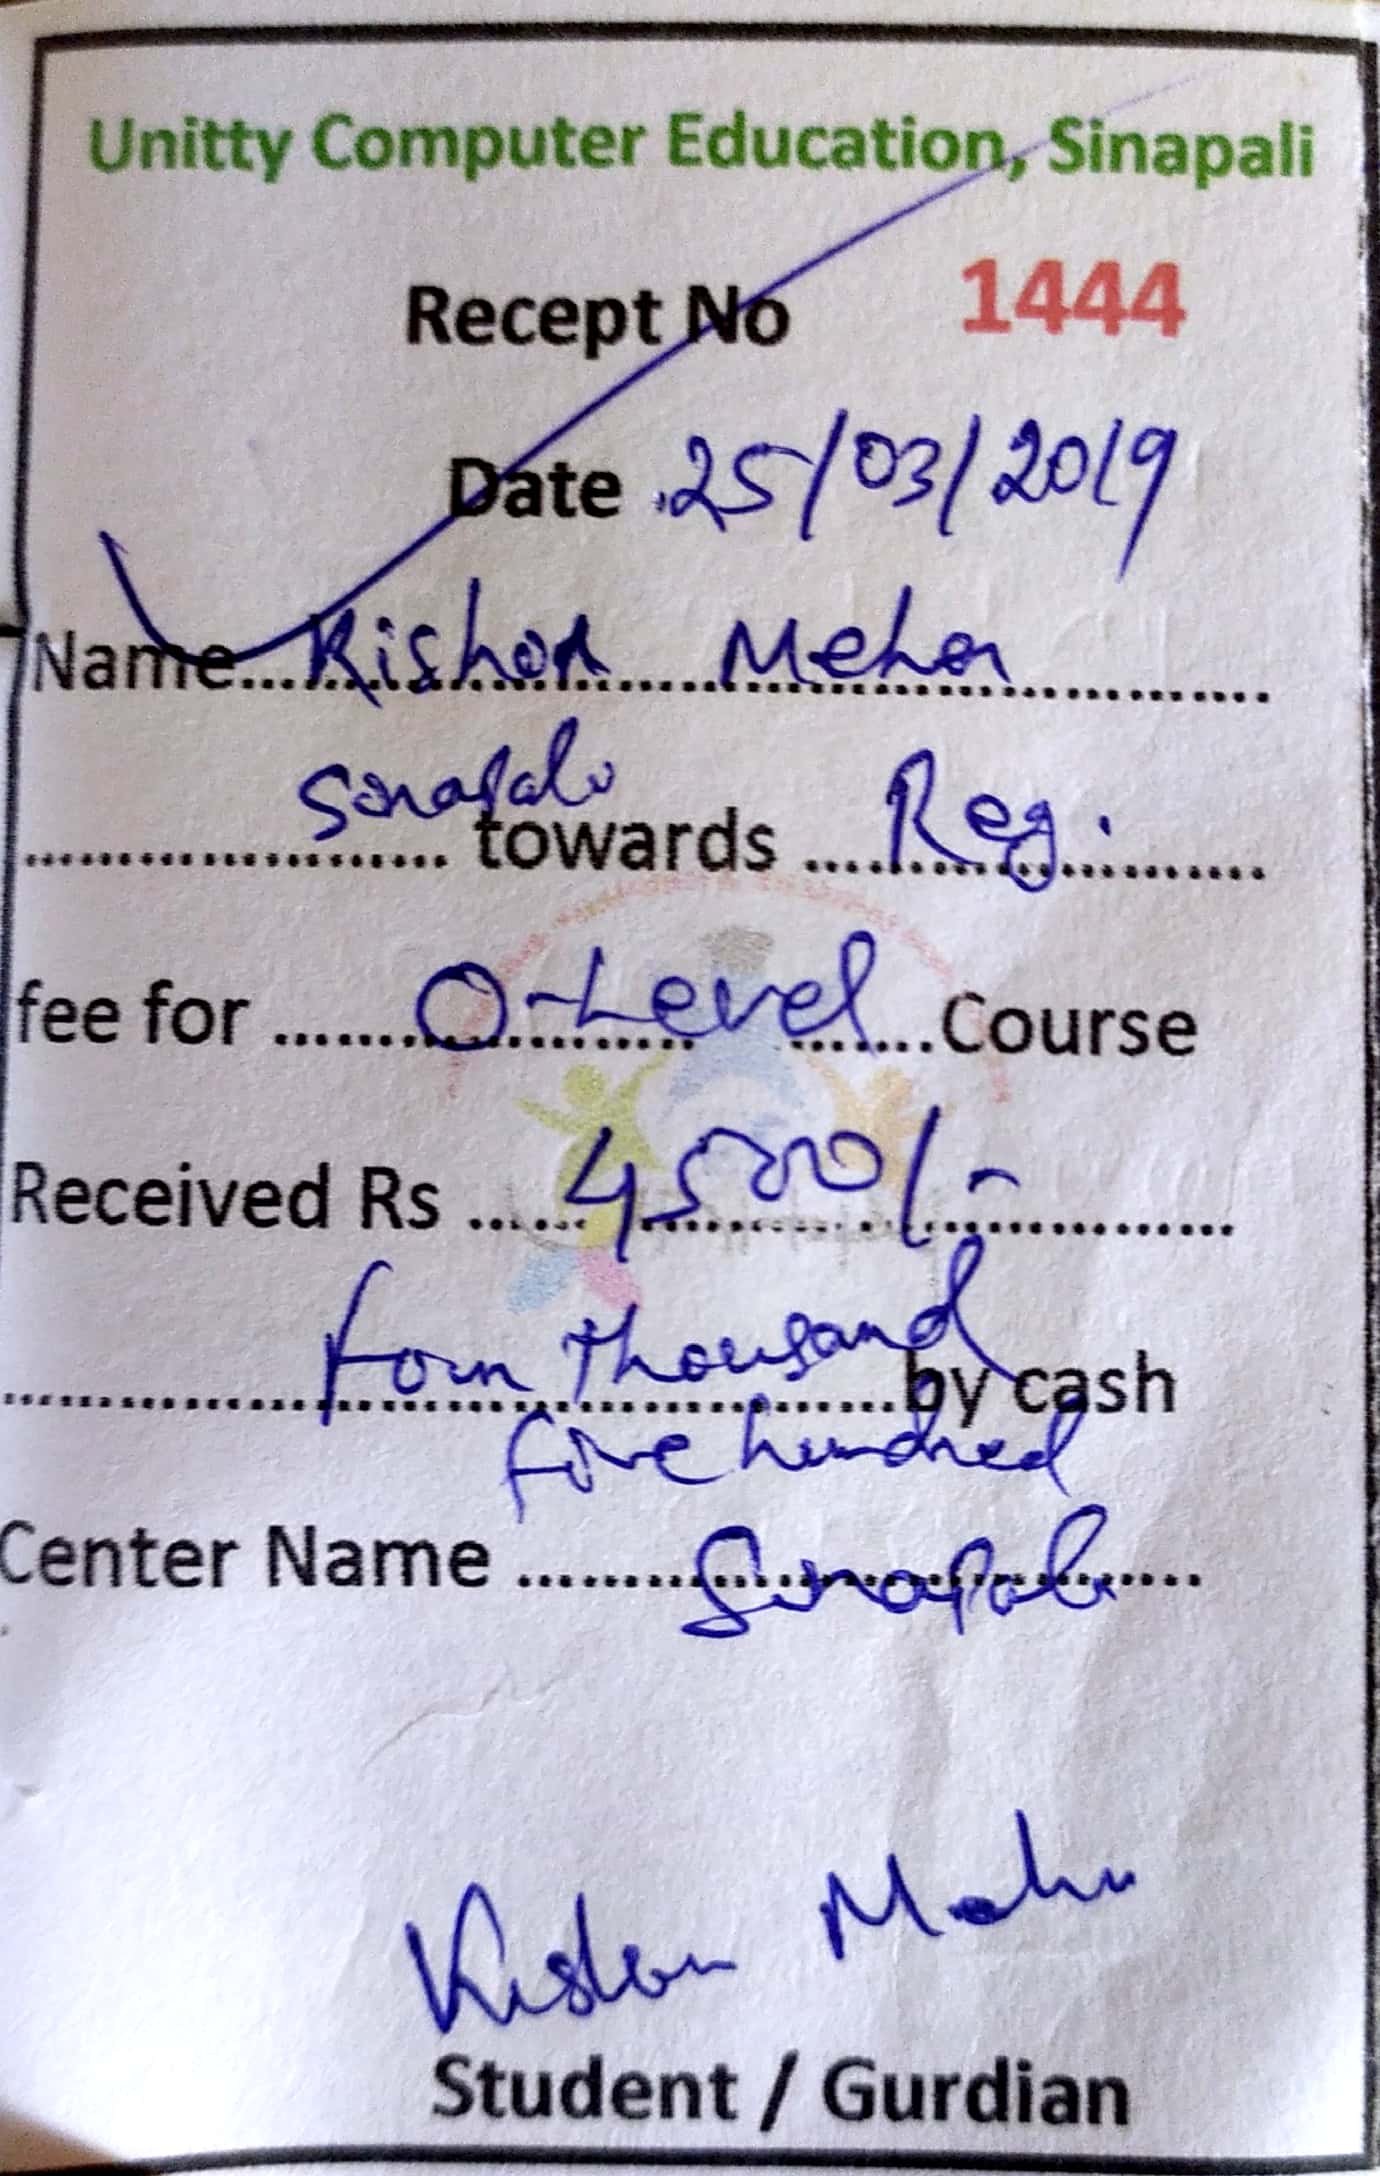 Unitty Computer Education, Sinapali
Recept No 1444
Date 25/03/2019
Name Kishor Meher
Sinapali towards Reg.
fee for O-Level Course
Received Rs 4500/-
four thousand by cash
five hundred
Center Name Sinapali
Kishor Meher
Student / Gurdian